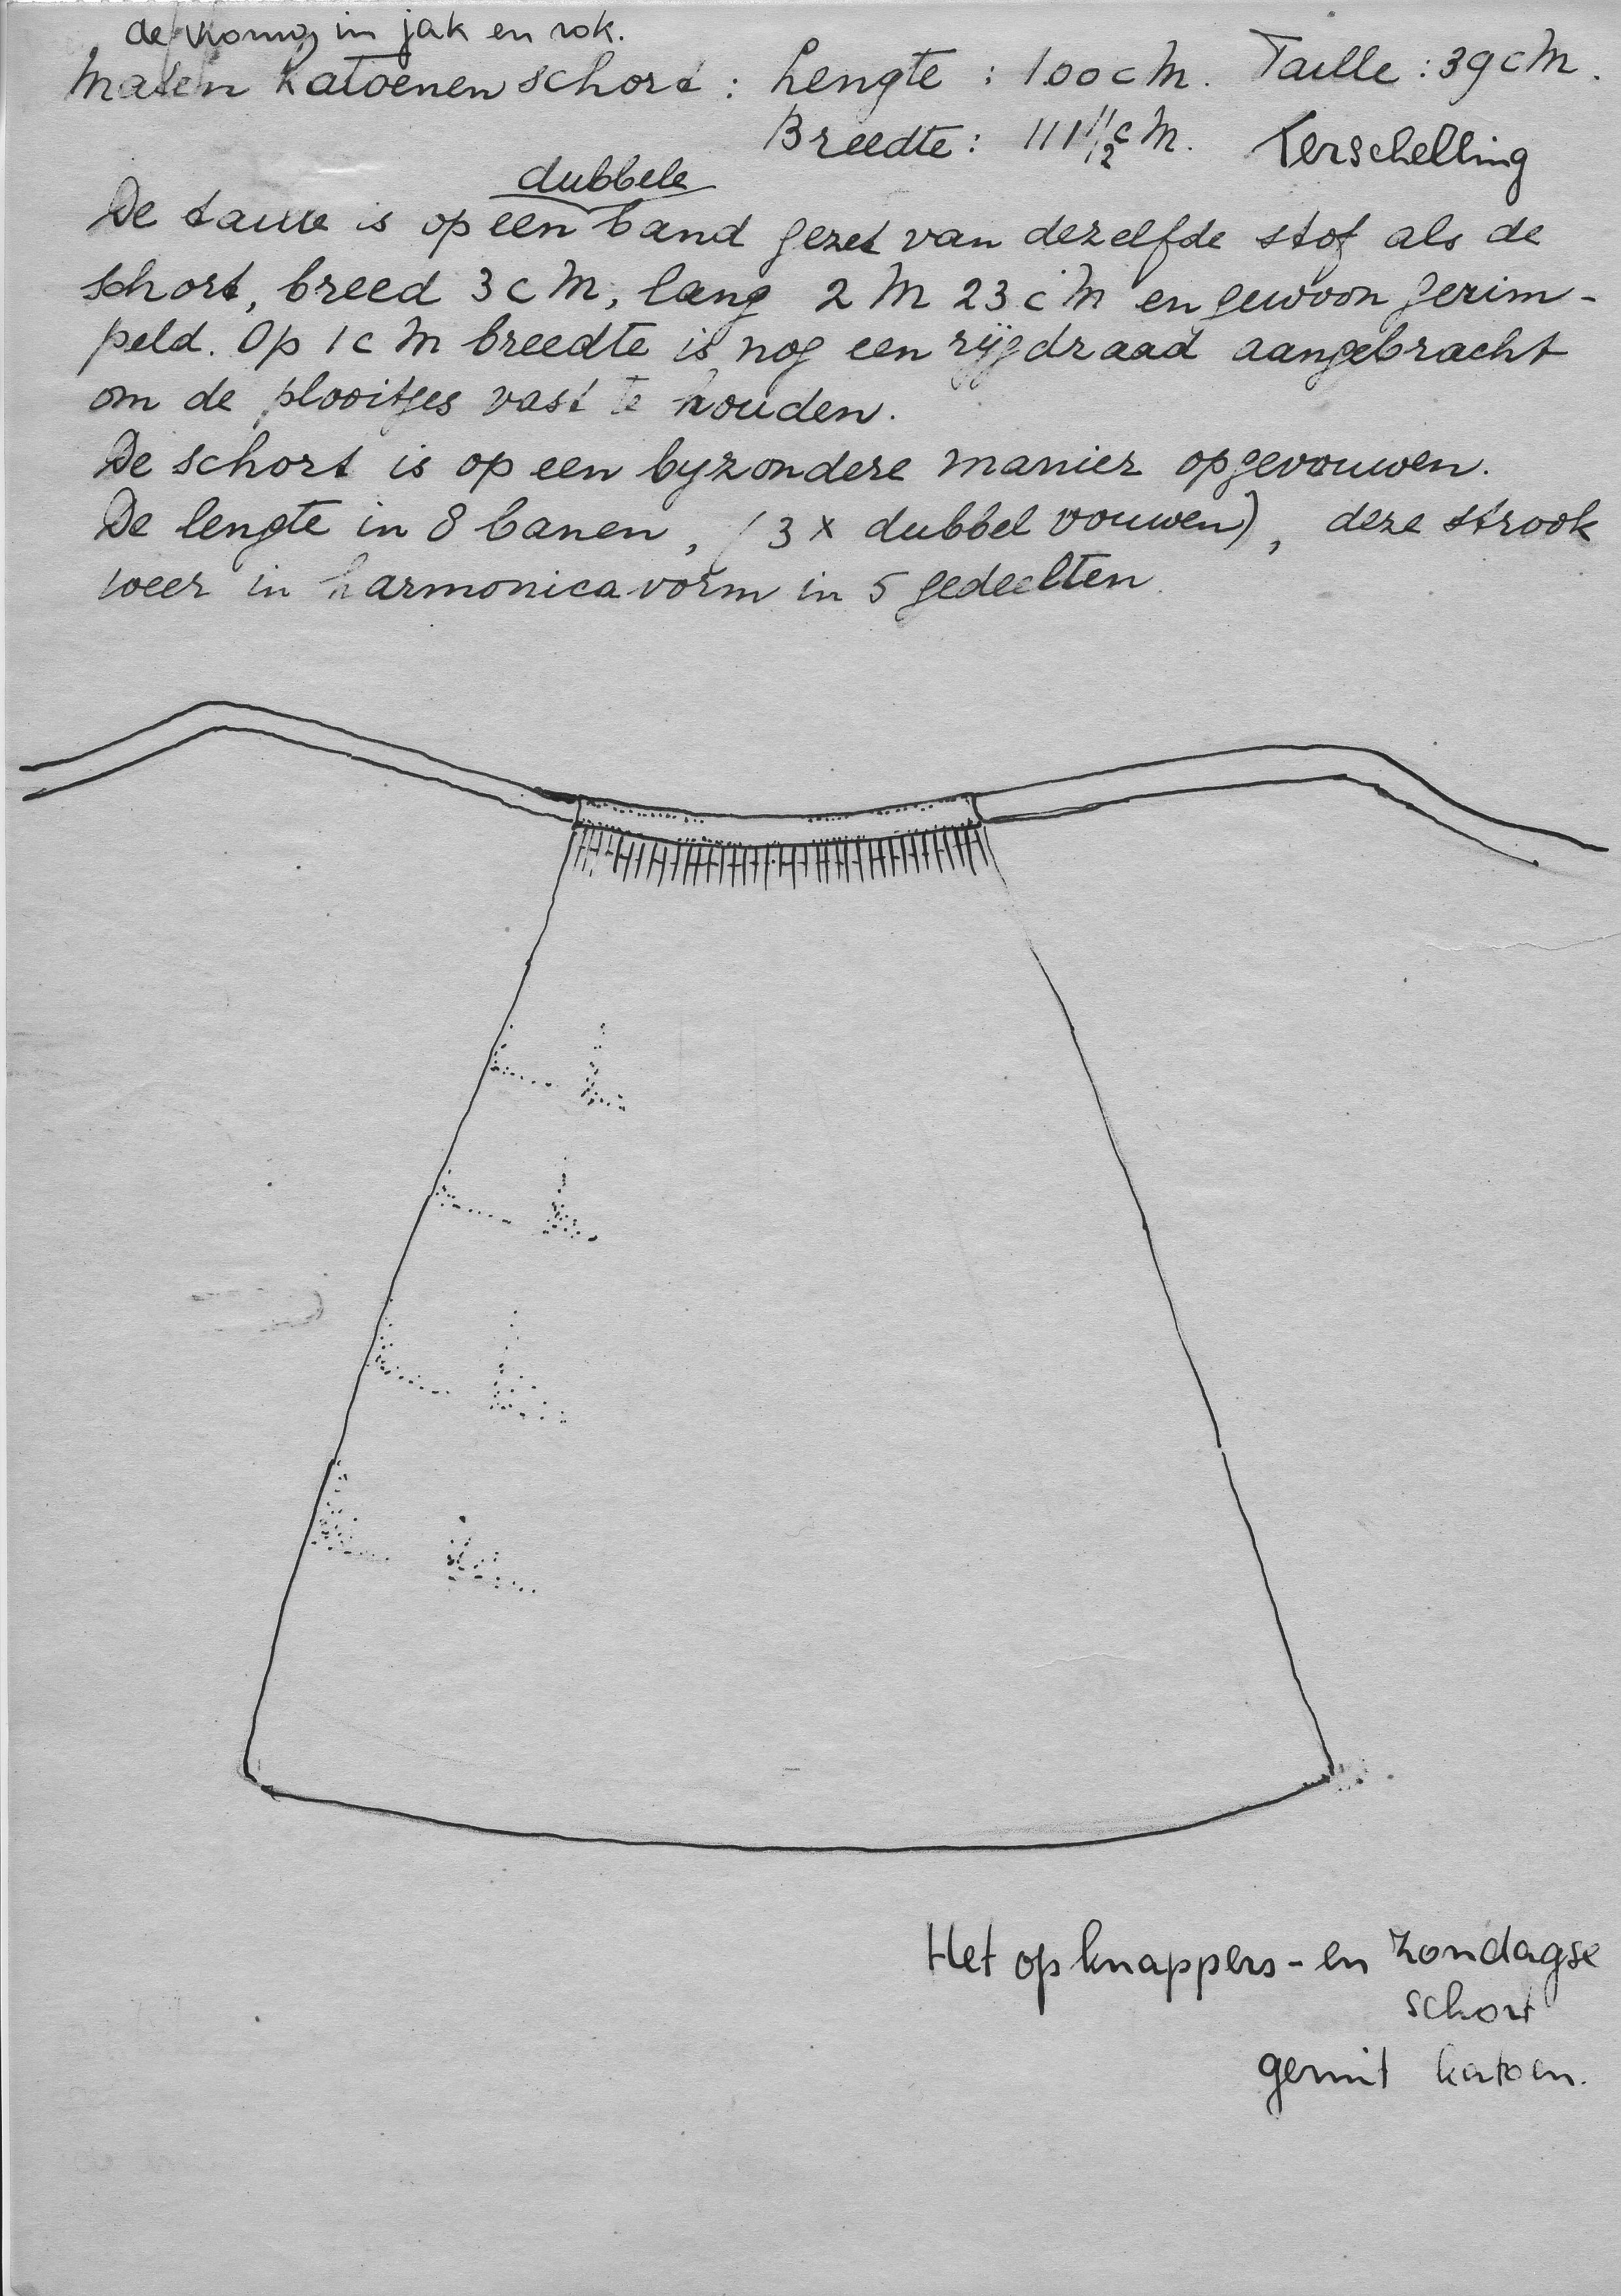 in jak en rok.
Maten Katoenen schort : Lengte : 100 cM. Taille : 39 cM.
Breedte : 111 1/2 cM. Terschelling
dubbele
De taille is op een band gezet van dezelfde stof als de
schort, breed 3 cM, lang 2 M 23 cM en gewoon gerim-
peld. Op 1 cM breedte is nog een rijgdraad aangebracht
om de plooitjes vast te houden.
De schort is op een byzondere manier opgevouwen.
De lengte in 8 banen, (3 x dubbel vouwen), deze strook
weer in harmonicavorm in 5 gedeelten.
Het opknappers - en zondagse
schort
geruit katoen.